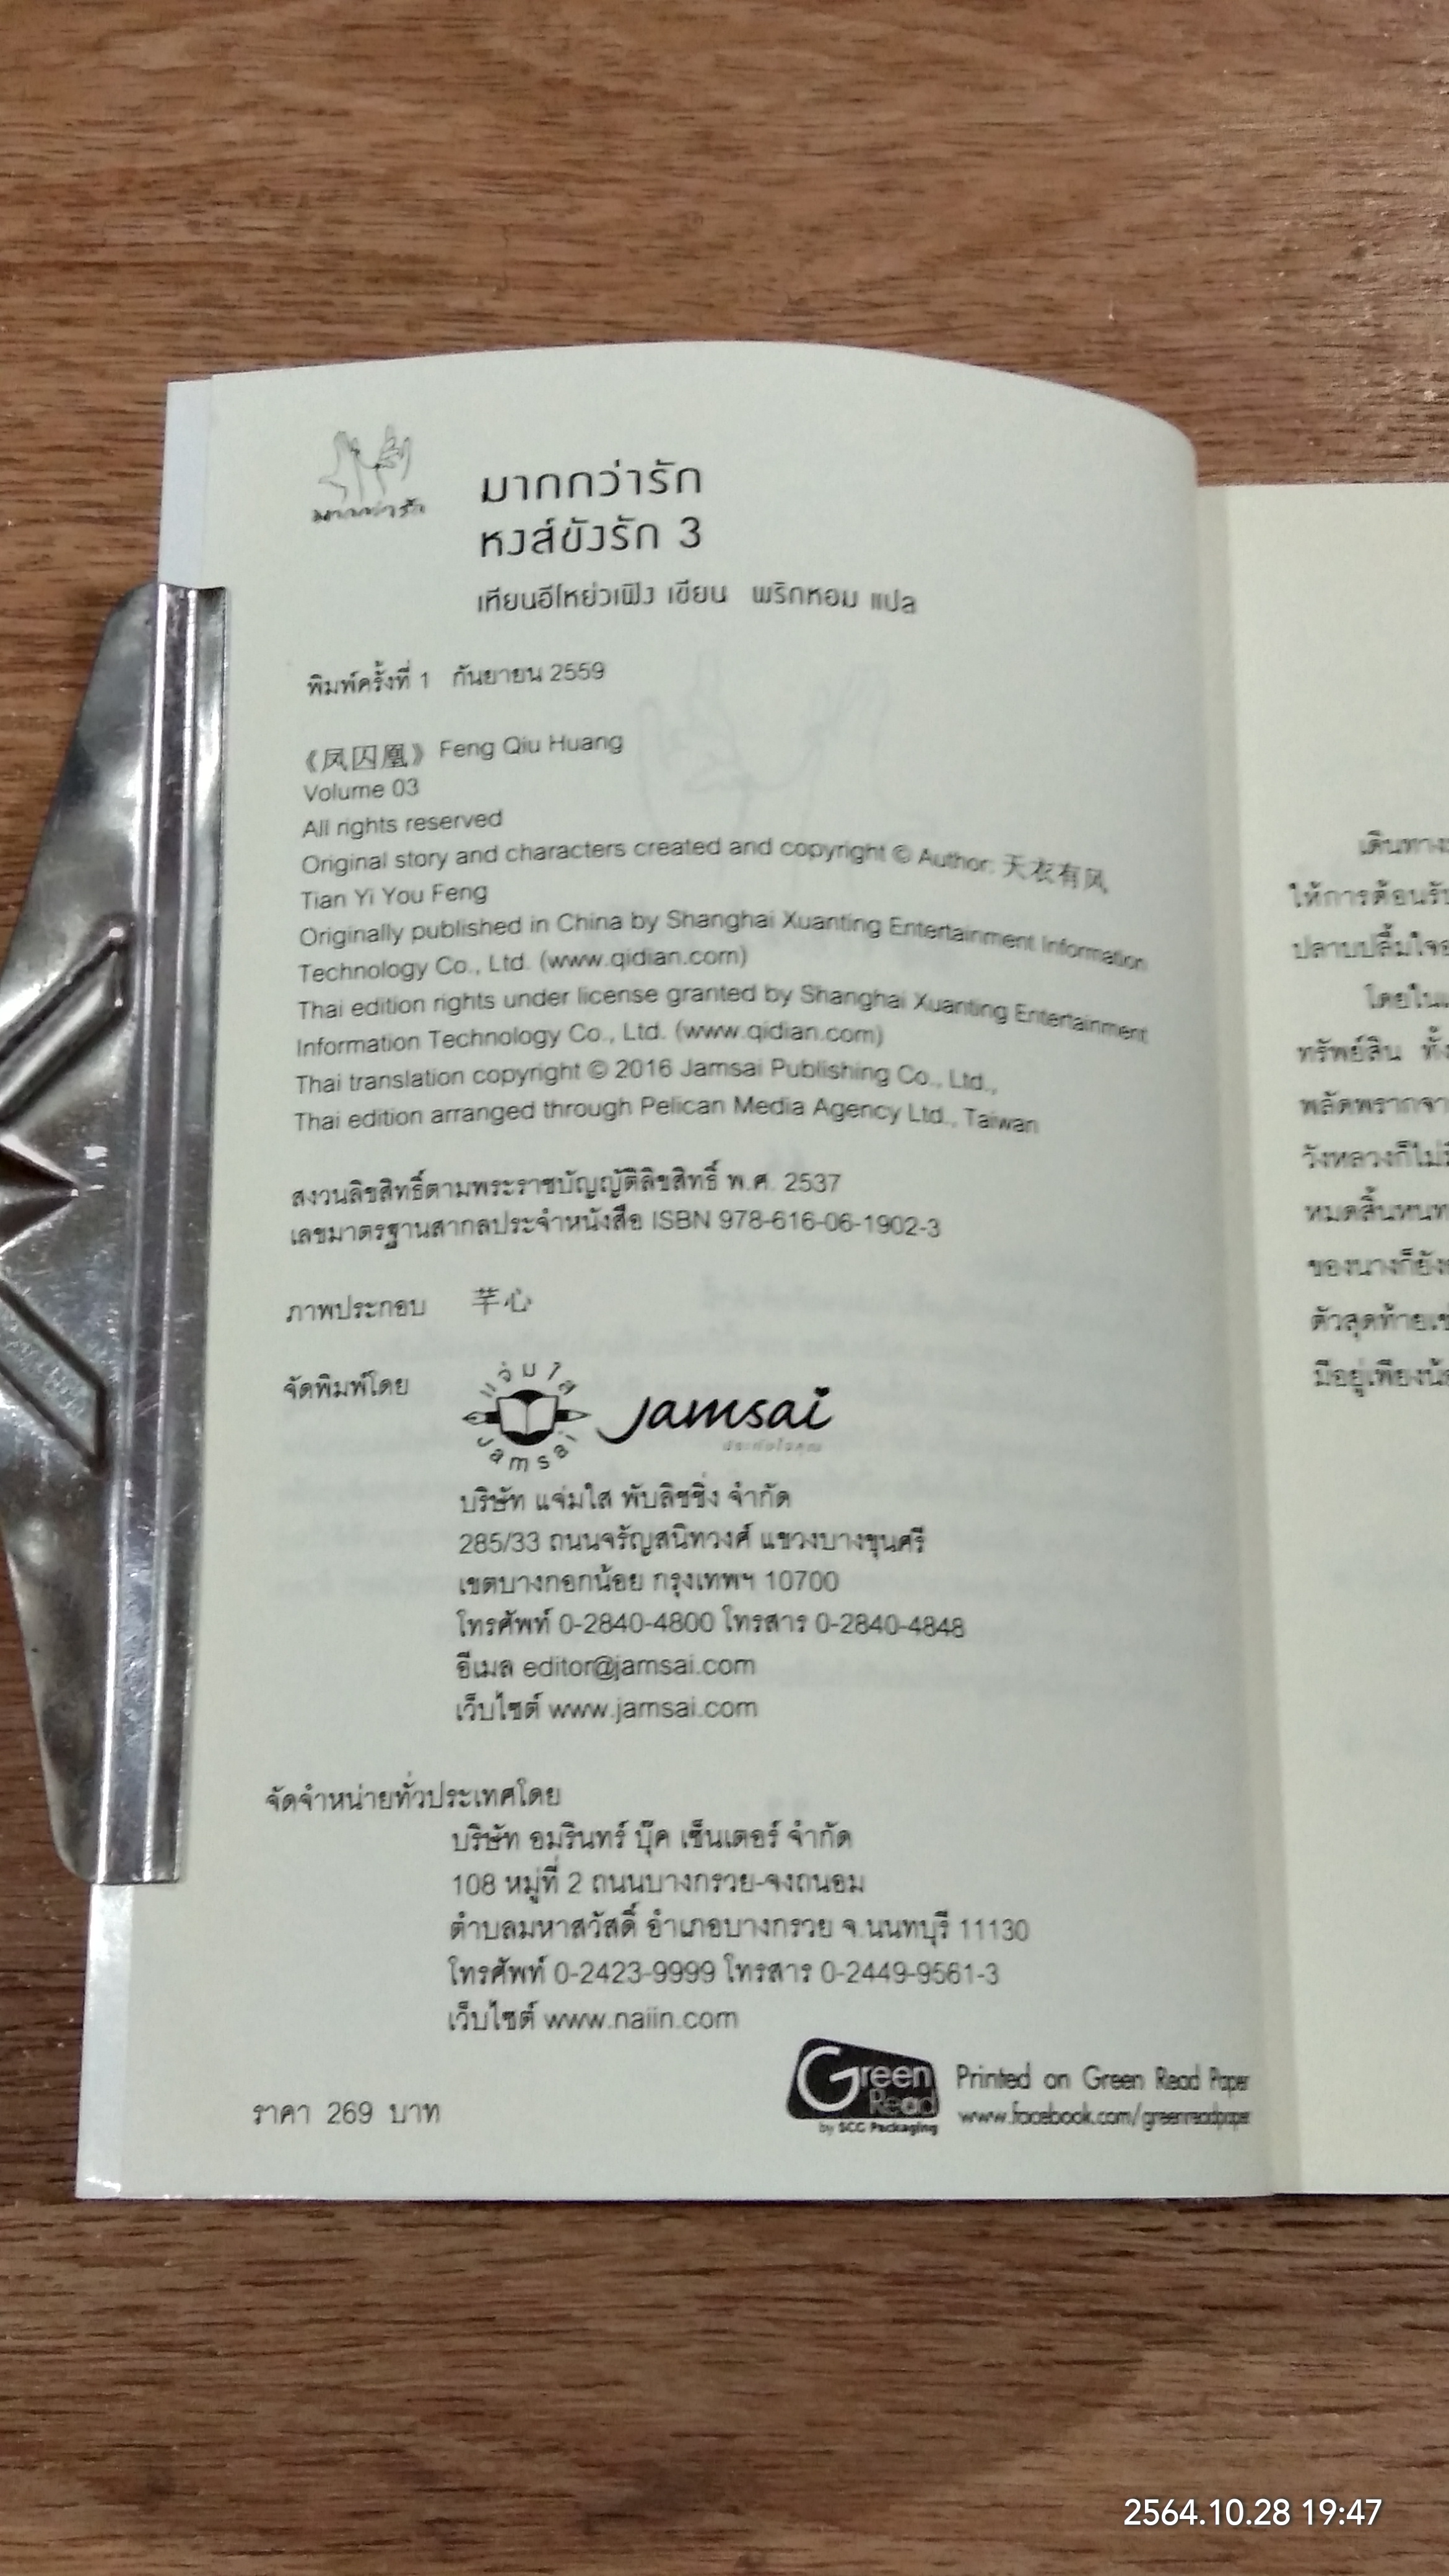 มากกว่ารัก
มากกว่ารัก
หงส์ขังรัก 3
เทียนอีโหย่วเฟิง เขียน พริกหอม แปล
พิมพ์ครั้งที่ 1 กันยายน 2559
《凤囚凰》 Feng Qiu Huang
Volume 03
All rights reserved
Original story and characters created and copyright © Author: 天衣有风
Tian Yi You Feng
Originally published in China by Shanghai Xuanting Entertainment Information
Technology Co., Ltd. (www.qidian.com)
Thai edition rights under license granted by Shanghai Xuanting Entertainment
Information Technology Co., Ltd. (www.qidian.com)
Thai translation copyright © 2016 Jamsai Publishing Co., Ltd.,
Thai edition arranged through Pelican Media Agency Ltd., Taiwan
สงวนลิขสิทธิ์ตามพระราชบัญญัติลิขสิทธิ์ พ.ศ. 2537
เลขมาตรฐานสากลประจำหนังสือ ISBN 978-616-06-1902-3
ภาพประกอบ 芊心
จัดพิมพ์โดย
แจ่มใส
Jamsai
Jamsai
บริษัท แจ่มใส พับลิชชิ่ง จำกัด
285/33 ถนนจรัญสนิทวงศ์ แขวงบางขุนศรี
เขตบางกอกน้อย กรุงเทพฯ 10700
โทรศัพท์ 0-2840-4800 โทรสาร 0-2840-4848
อีเมล editor@jamsai.com
เว็บไซต์ www.jamsai.com
จัดจำหน่ายทั่วประเทศโดย
บริษัท อมรินทร์ บุ๊ค เซ็นเตอร์ จำกัด
108 หมู่ที่ 2 ถนนบางกรวย-จงถนอม
ตำบลมหาสวัสดิ์ อำเภอบางกรวย จ.นนทบุรี 11130
โทรศัพท์ 0-2423-9999 โทรสาร 0-2449-9561-3
เว็บไซต์ www.naiin.com
Green
Read
by SCG Packaging
Printed on Green Read Paper
www.facebook.com/greenreadpaper
ราคา 269 บาท
เดินทาง
ให้การต้อนรับ
ปลาบปลื้มใจ
โดยใน
ทรัพย์สิน ทั้ง
พลัดพรากจาก
วังหลวงก็ไม่
หมดสิ้นหนทาง
ของนางก็ยัง
ตัวสุดท้าย
มีอยู่เพียง
2564.10.28 19:47